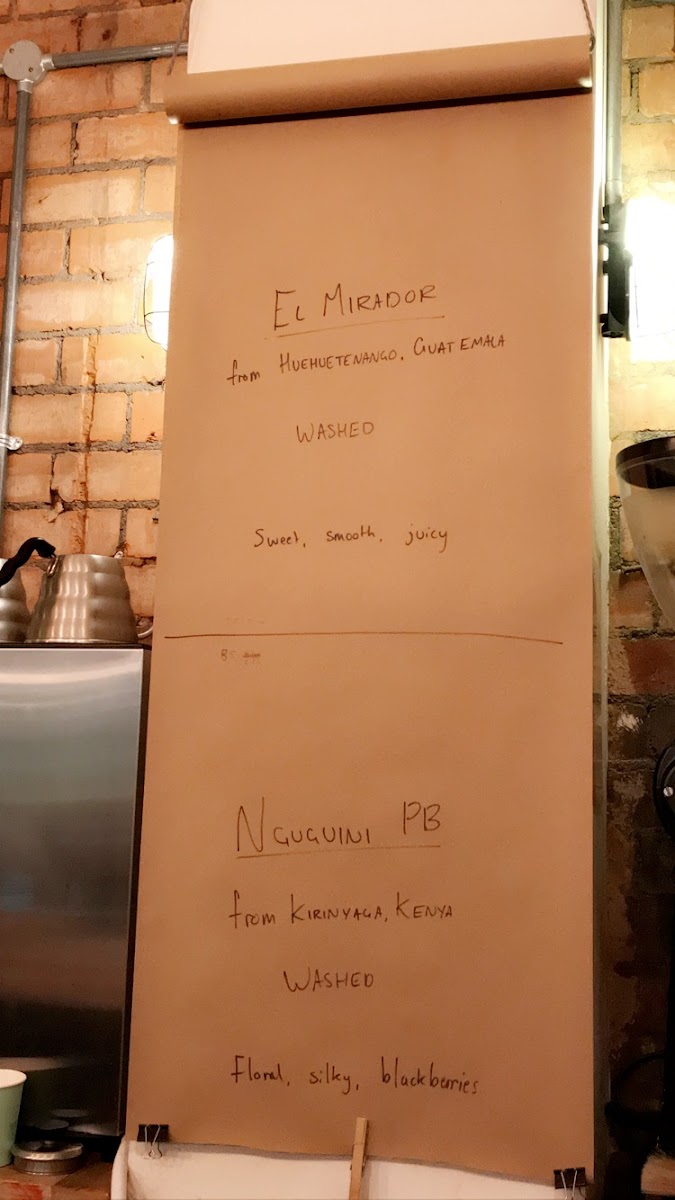 EL MIRADOR
from HUEHUETENANGO, GUATEMALA
WASHED
Sweet, smooth, juicy
NGUGUINI PB
from KIRINYAGA, KENYA
WASHED
Floral, silky, blackberries